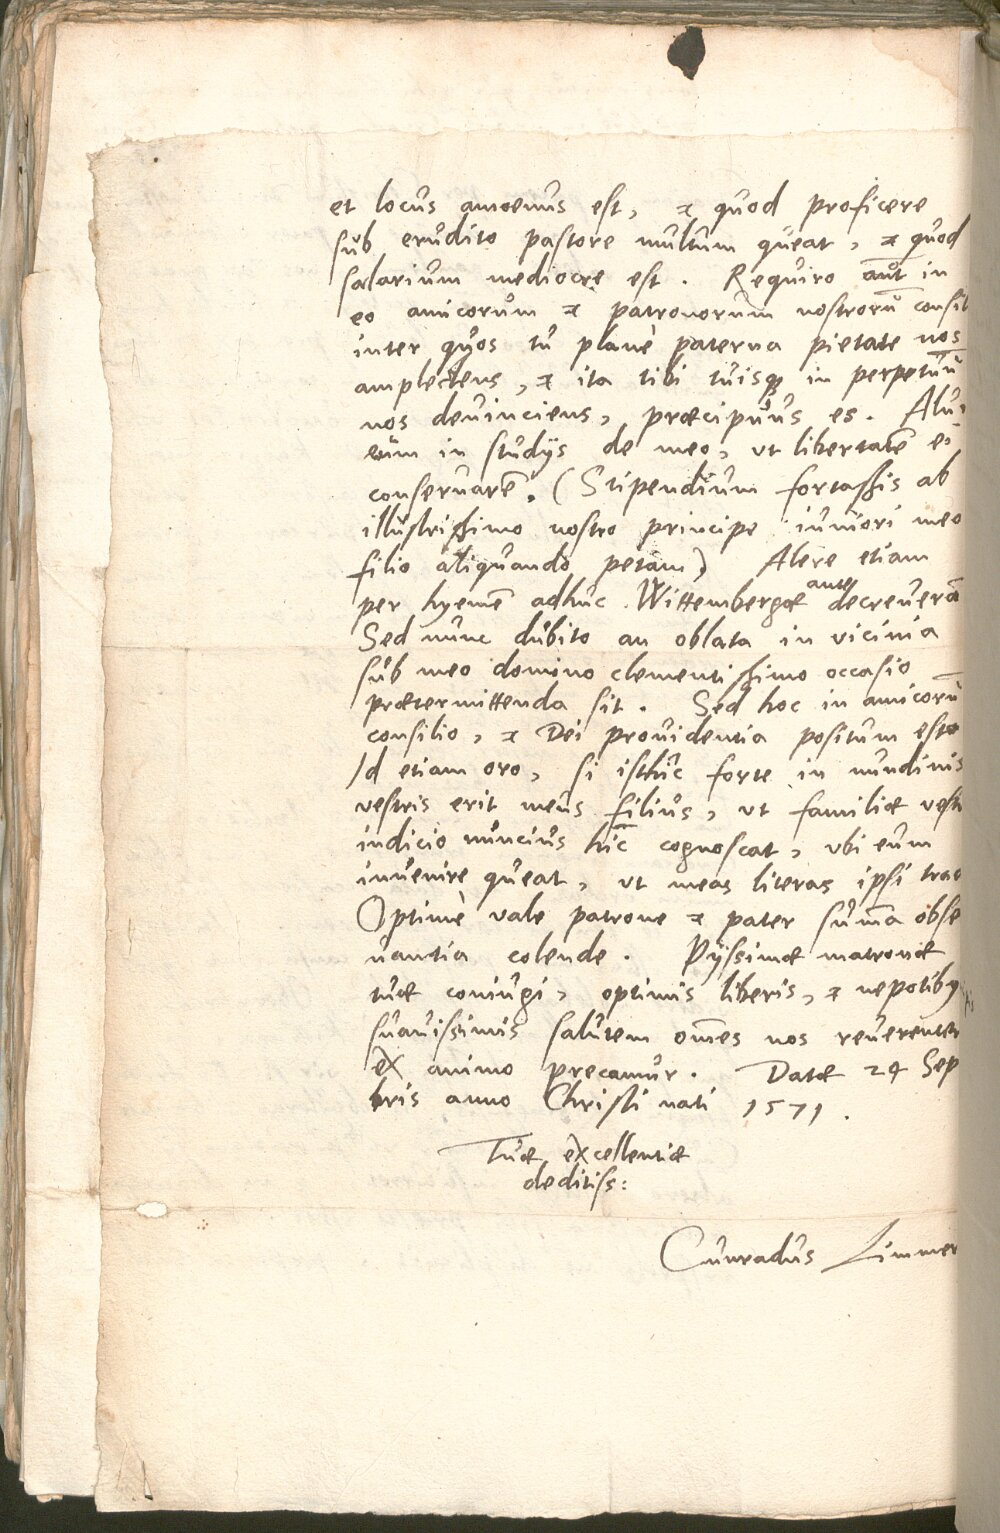 et locus amoenus est, & quod proficere
sub erudito pastore multum queat, & quod
salarium mediocre est. Requiro aut̄ in
eo amicorum & patronorum nostrorū consil
inter quos tu planè paterna pietate nos
amplectens, & ita tibi tuisq; in perpetuū
nos deuinciens, præcipuus es. Alui
eum in studijs de meo, vt libertatē ei
conseruarē. (Stipendium fortassis ab
illustrissimo nostro principe iuniori meo
filio aliquando petam) Alere etiam
per hyemē adhuc Wittembergæ ante decreuerā
Sed nunc dubito an oblata in vicinia
sub meo domino clementissimo occasio
prætermittenda sit. Sed hoc in amicorū
consilio, & Dei prouidentia positum esto
Id etiam oro, si isthic forte in nundinis
vestris erit meus filius, vt familiæ vestr
indicio nuncius hic cognoscat, vbi eum
inuenire queat, vt meas literas ipsi trad
Optimè vale patrone & pater sum̄a obse
uantia colende. Pijssimæ matronæ
tuæ coniugi, optimis liberis, & nepotibus
suauissimis salutem om̄es nos reuerenter
ex animo precamur. Datæ 24 Sep
bris anno Christi nati 1571.
Tuæ excellentiæ
deditiss:
Cunradus Limmer